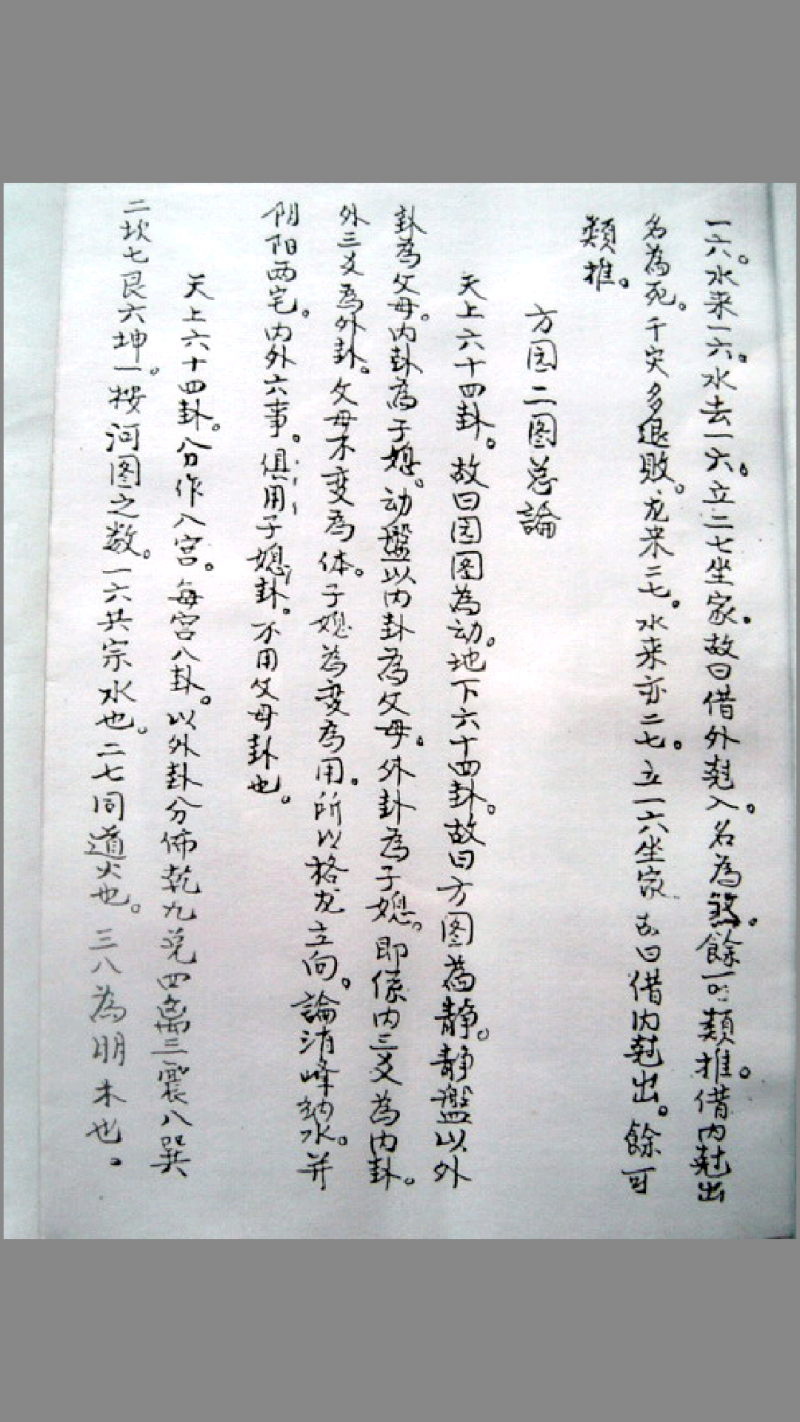 一六。水来一六。水去一六。立二七坐家。故曰借外尅入。名為煞。餘可類推。借内尅出
名為死。千灾多退败。龙来二七。水来亦二七。立一六坐家。故曰借内尅出。餘可
類推。
方园二图总論
天上六十四卦。故曰园图為动。地下六十四卦。故曰方图為静。静盤以外
卦為父母。内卦為子媳。动盤以内卦為父母。外卦為子媳。即係内三爻為内卦。
外三爻為外卦。父母不变為体。子媳為变為用。所以格龙立向。論消峰納水。并
阴阳两宅。内外六事。俱用子媳卦。不用父母卦也。
天上六十四卦。分作八宫。每宫八卦。以外卦分佈乾九兑四离三震八巽
二坎七艮六坤一按河图之数。一六共宗水也。二七同道火也。三八為朋木也。